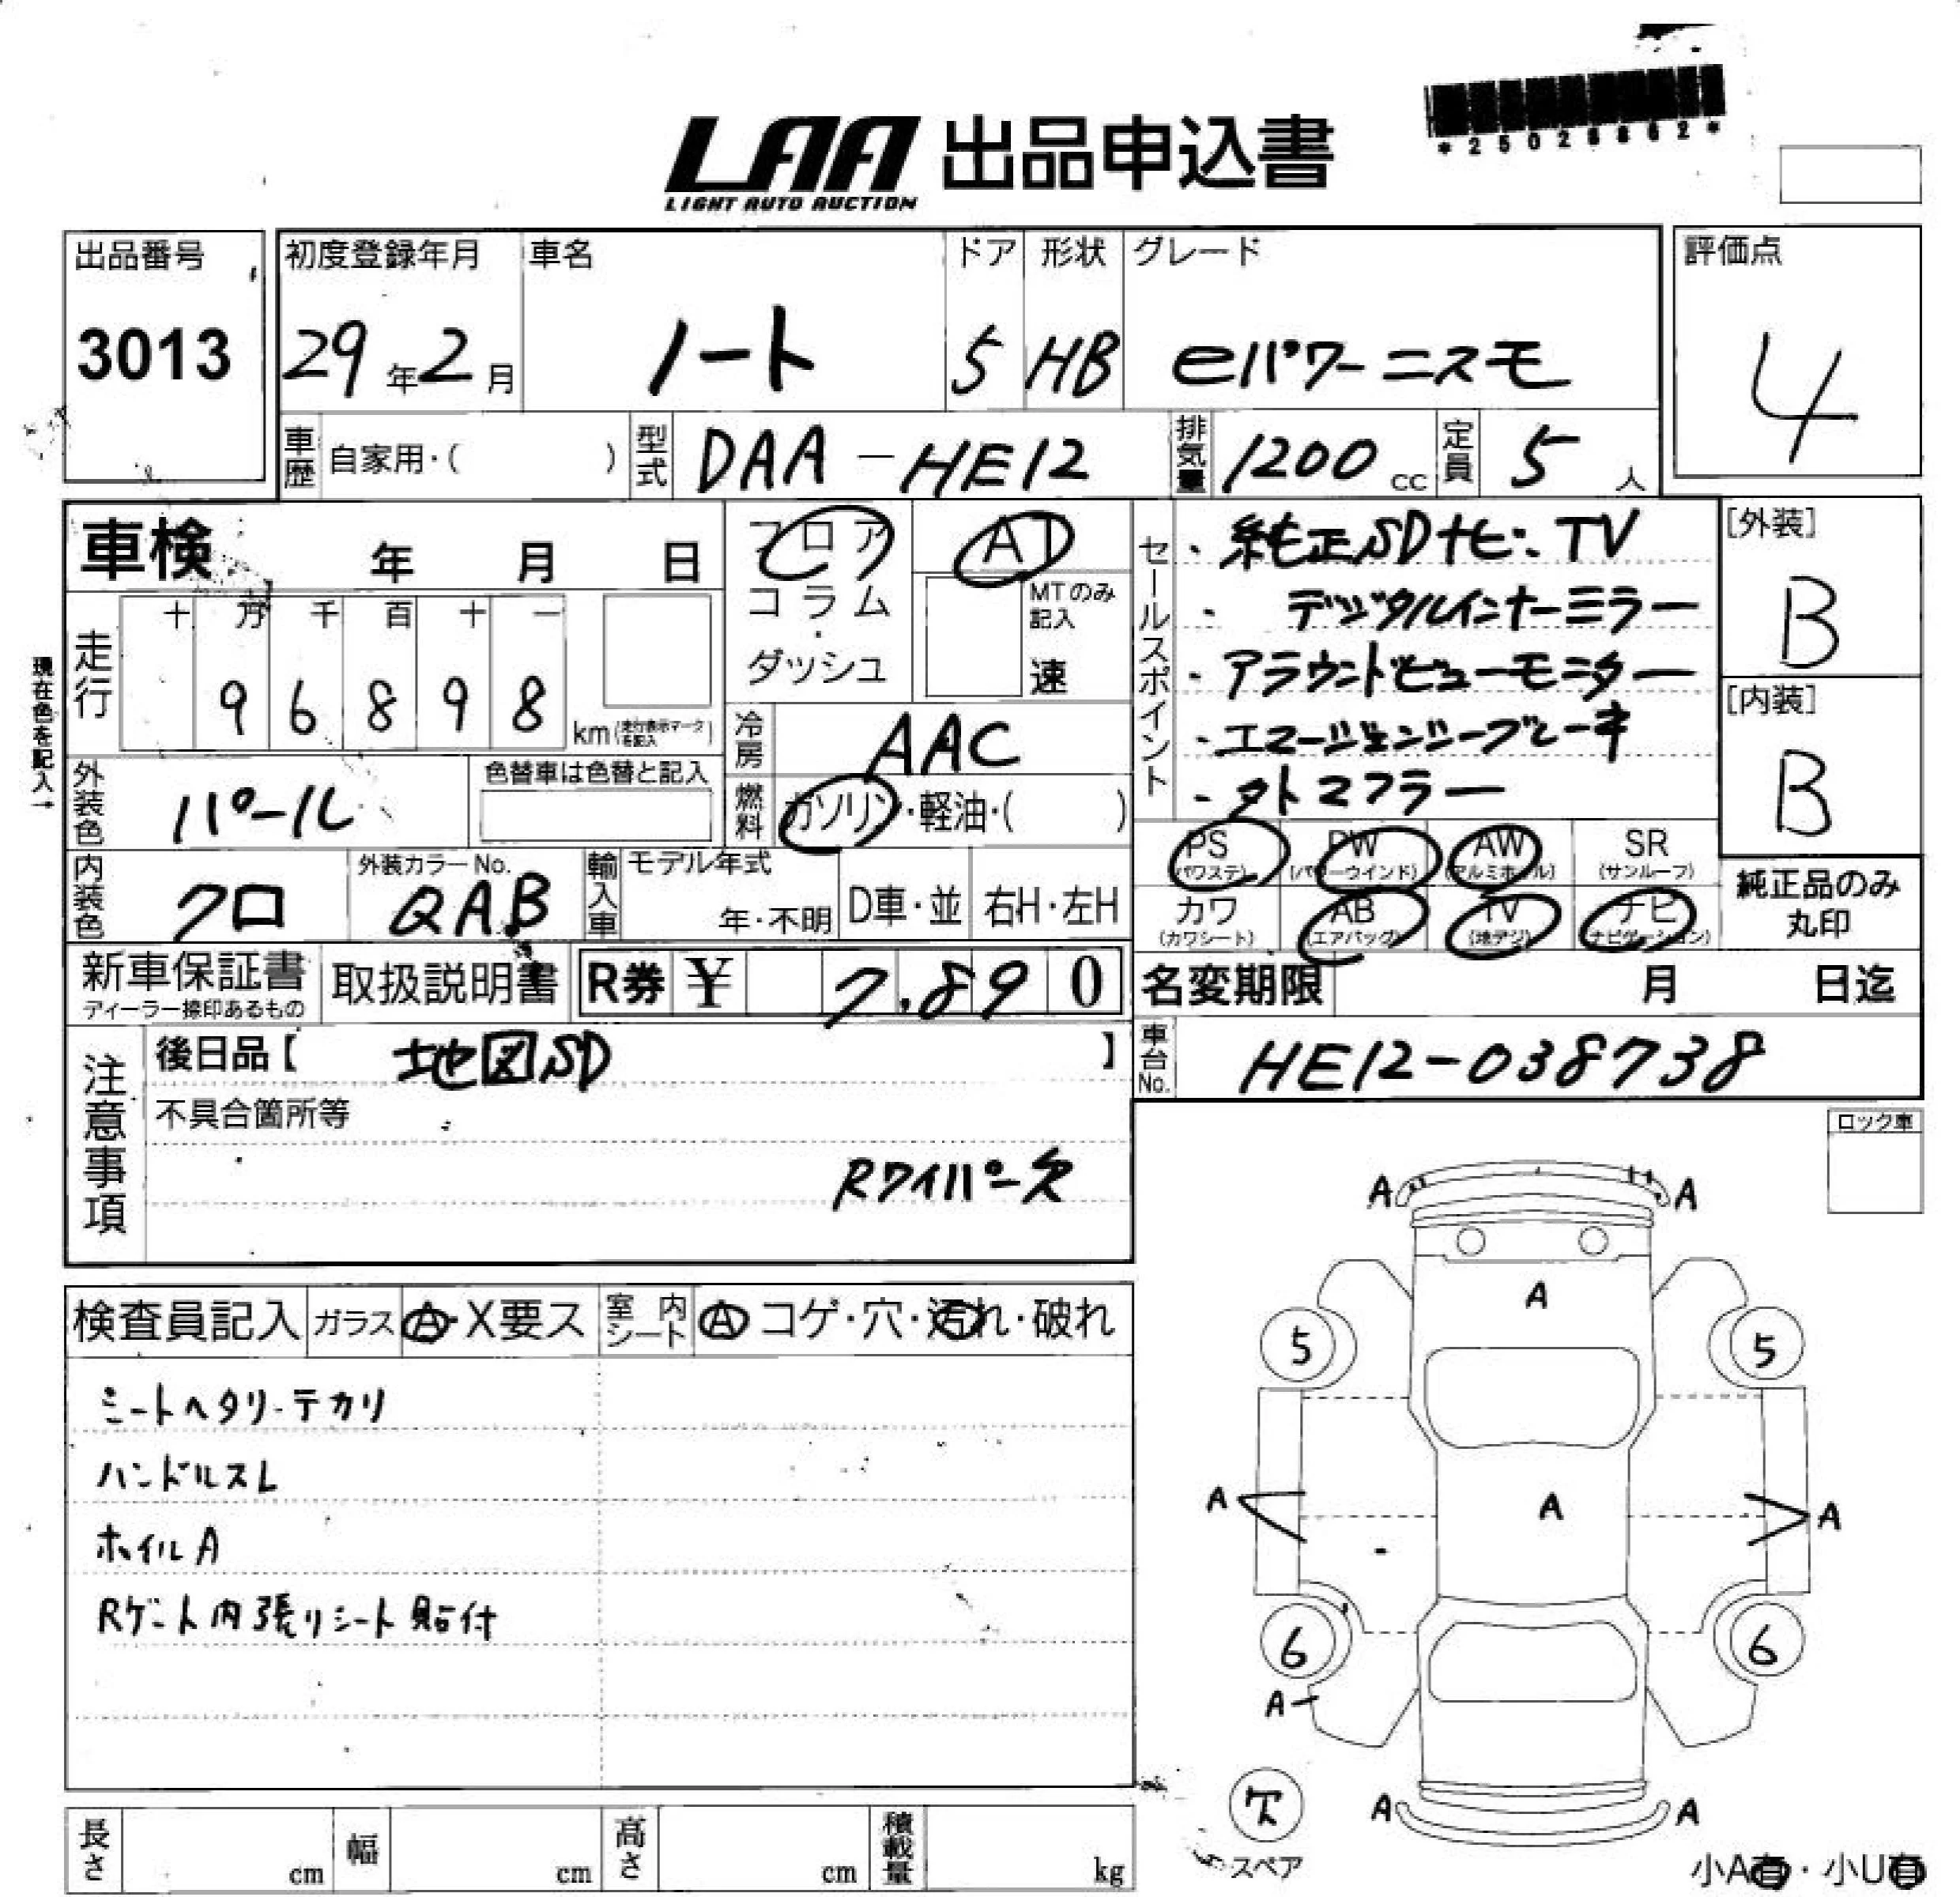 *25028862*
LAA 出品申込書
LIGHT AUTO AUCTION
出品番号
3013
初度登録年月
29年2月
車名
ノート
ドア
5
形状
HB
グレード
eパワー ニスモ
評価点
4
車歴
自家用・( )
型式
DAA-HE12
排気量
1200 cc
定員
5 人
車検 年 月 日
フロア
コラム
・
ダッシュ
AT
MTのみ記入
速
セールスポイント
・純正SDナビ・TV
・デジタルインナーミラー
・アラウンドビューモニター
・エマージェンシーブレーキ
・タトマフラー
[外装]
B
[内装]
B
現在色を記入→
走行
十 万 千 百 十 一
9 6 8 9 8
km(走行表示マークを記入)
冷房
AAC
外装色
パール
色替車は色替と記入
燃料
ガソリン・軽油・( )
内装色
クロ
外装カラーNo.
QAB
輸入車
モデル年式
年・不明
D車・並
右H・左H
PS (パワステ)
PW (パワーウインド)
AW (アルミホイル)
SR (サンルーフ)
カワ (カワシート)
AB (エアバッグ)
TV (地デジ)
ナビ (ナビゲーション)
純正品のみ
丸印
新車保証書
ディーラー捺印あるもの
取扱説明書
R券 ¥ 7,890
名変期限 月 日迄
注意事項
後日品【 地図SD 】
不具合箇所等
Rワイパー欠
車台No.
HE12-038738
ロック車
検査員記入
ガラス
A・X要ス
室内シート
A コゲ・穴・汚れ・破れ
シートヘタリ・テカリ
ハンドルスレ
ホイルA
Rゲート内張りシート貼付
A A
A
5 5
A A A
6 6
A
A A
欠
スペア
小A有・小U有
長さ cm
幅 cm
高さ cm
積載量 kg